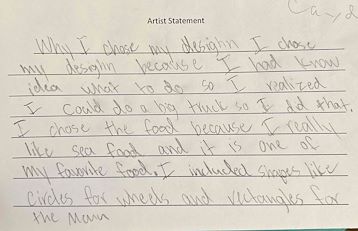 Artist Statement
Why I chose my desighn I chose
my desighn because I had know
idea what to do so I realized
I could do a big truck so I did that.
I chose the food because I really
like sea food and it is one of
my favorite food. I included shapes like
circles for wheels and rectangles for
the